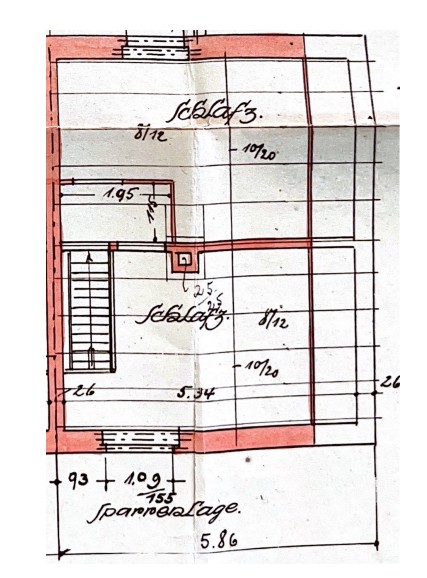 Schlafz.
8/12
10/20
1.95
25
25
Schlafz.
8/12
10/20
26
5.34
26
93
1.09
155
Sparrenlage.
5.86